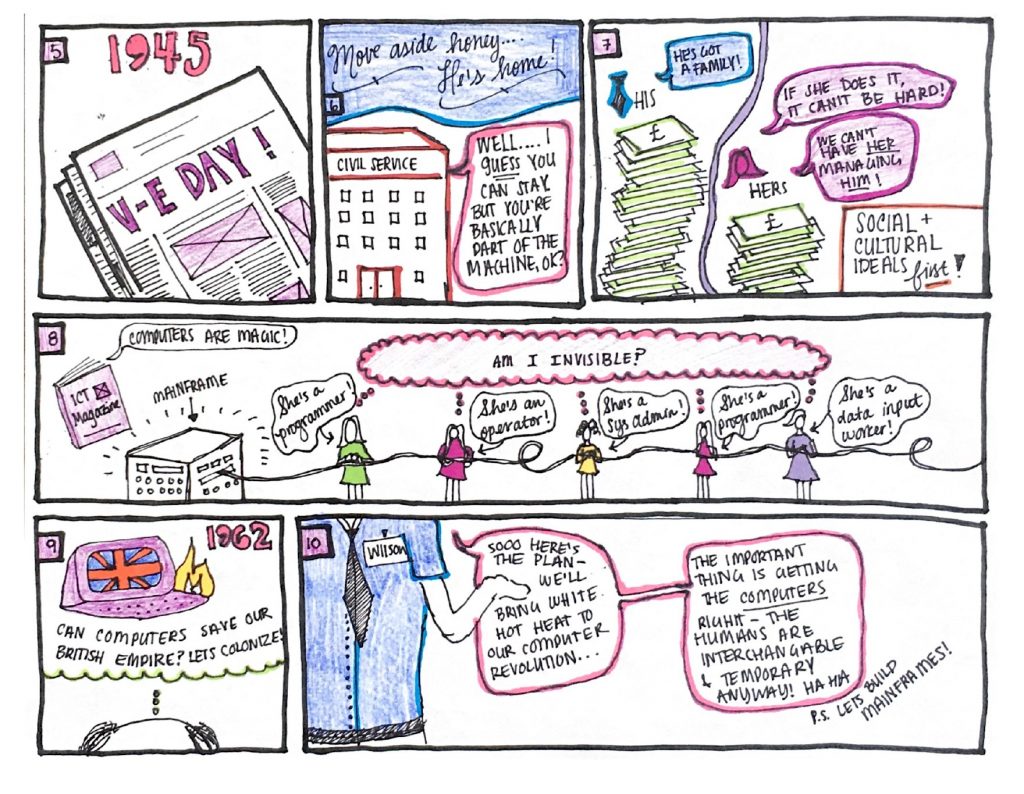 5
1945
V-E DAY!
Move aside honey....
He's home!
6
CIVIL SERVICE
WELL.... I
GUESS YOU
CAN STAY
BUT YOU'RE
BASICALLY
PART OF THE
MACHINE, OK?
7
HE'S GOT
A FAMILY!
HIS
£
IF SHE DOES IT,
IT CAN'T BE HARD!
WE CAN'T
HAVE HER
MANAGING
HIM!
HERS
£
SOCIAL +
CULTURAL
IDEALS
first!
8
COMPUTERS ARE MAGIC!
ICT
Magazine
MAINFRAME
AM I INVISIBLE?
She's a
programmer!
She's an
operator!
She's a
sys admin!
She's a
programmer!
She's a
data input
worker!
9
1962
CAN COMPUTERS SAVE OUR
BRITISH EMPIRE? LETS COLONIZE!
10
Wilson
SOOO HERE'S
THE PLAN-
WE'LL
BRING WHITE
HOT HEAT TO
OUR COMPUTER
REVOLUTION...
THE IMPORTANT
THING IS GETTING
THE COMPUTERS
RIGHT - THE
HUMANS ARE
INTERCHANGABLE
+ TEMPORARY
ANYWAY! HA HA
P.S. LETS BUILD
MAINFRAMES!